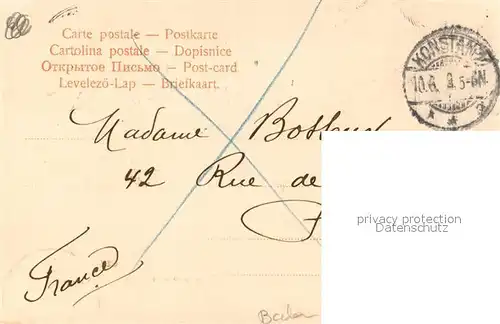 Carte postale — Postkarte
Cartolina postale — Dopisnice
Открытое Письмо — Post-card
Levelező-Lap — Briefkaart.
KONSTANZ
10.6.
Madame
42 Rue de
France
privacy protection
Datenschutz